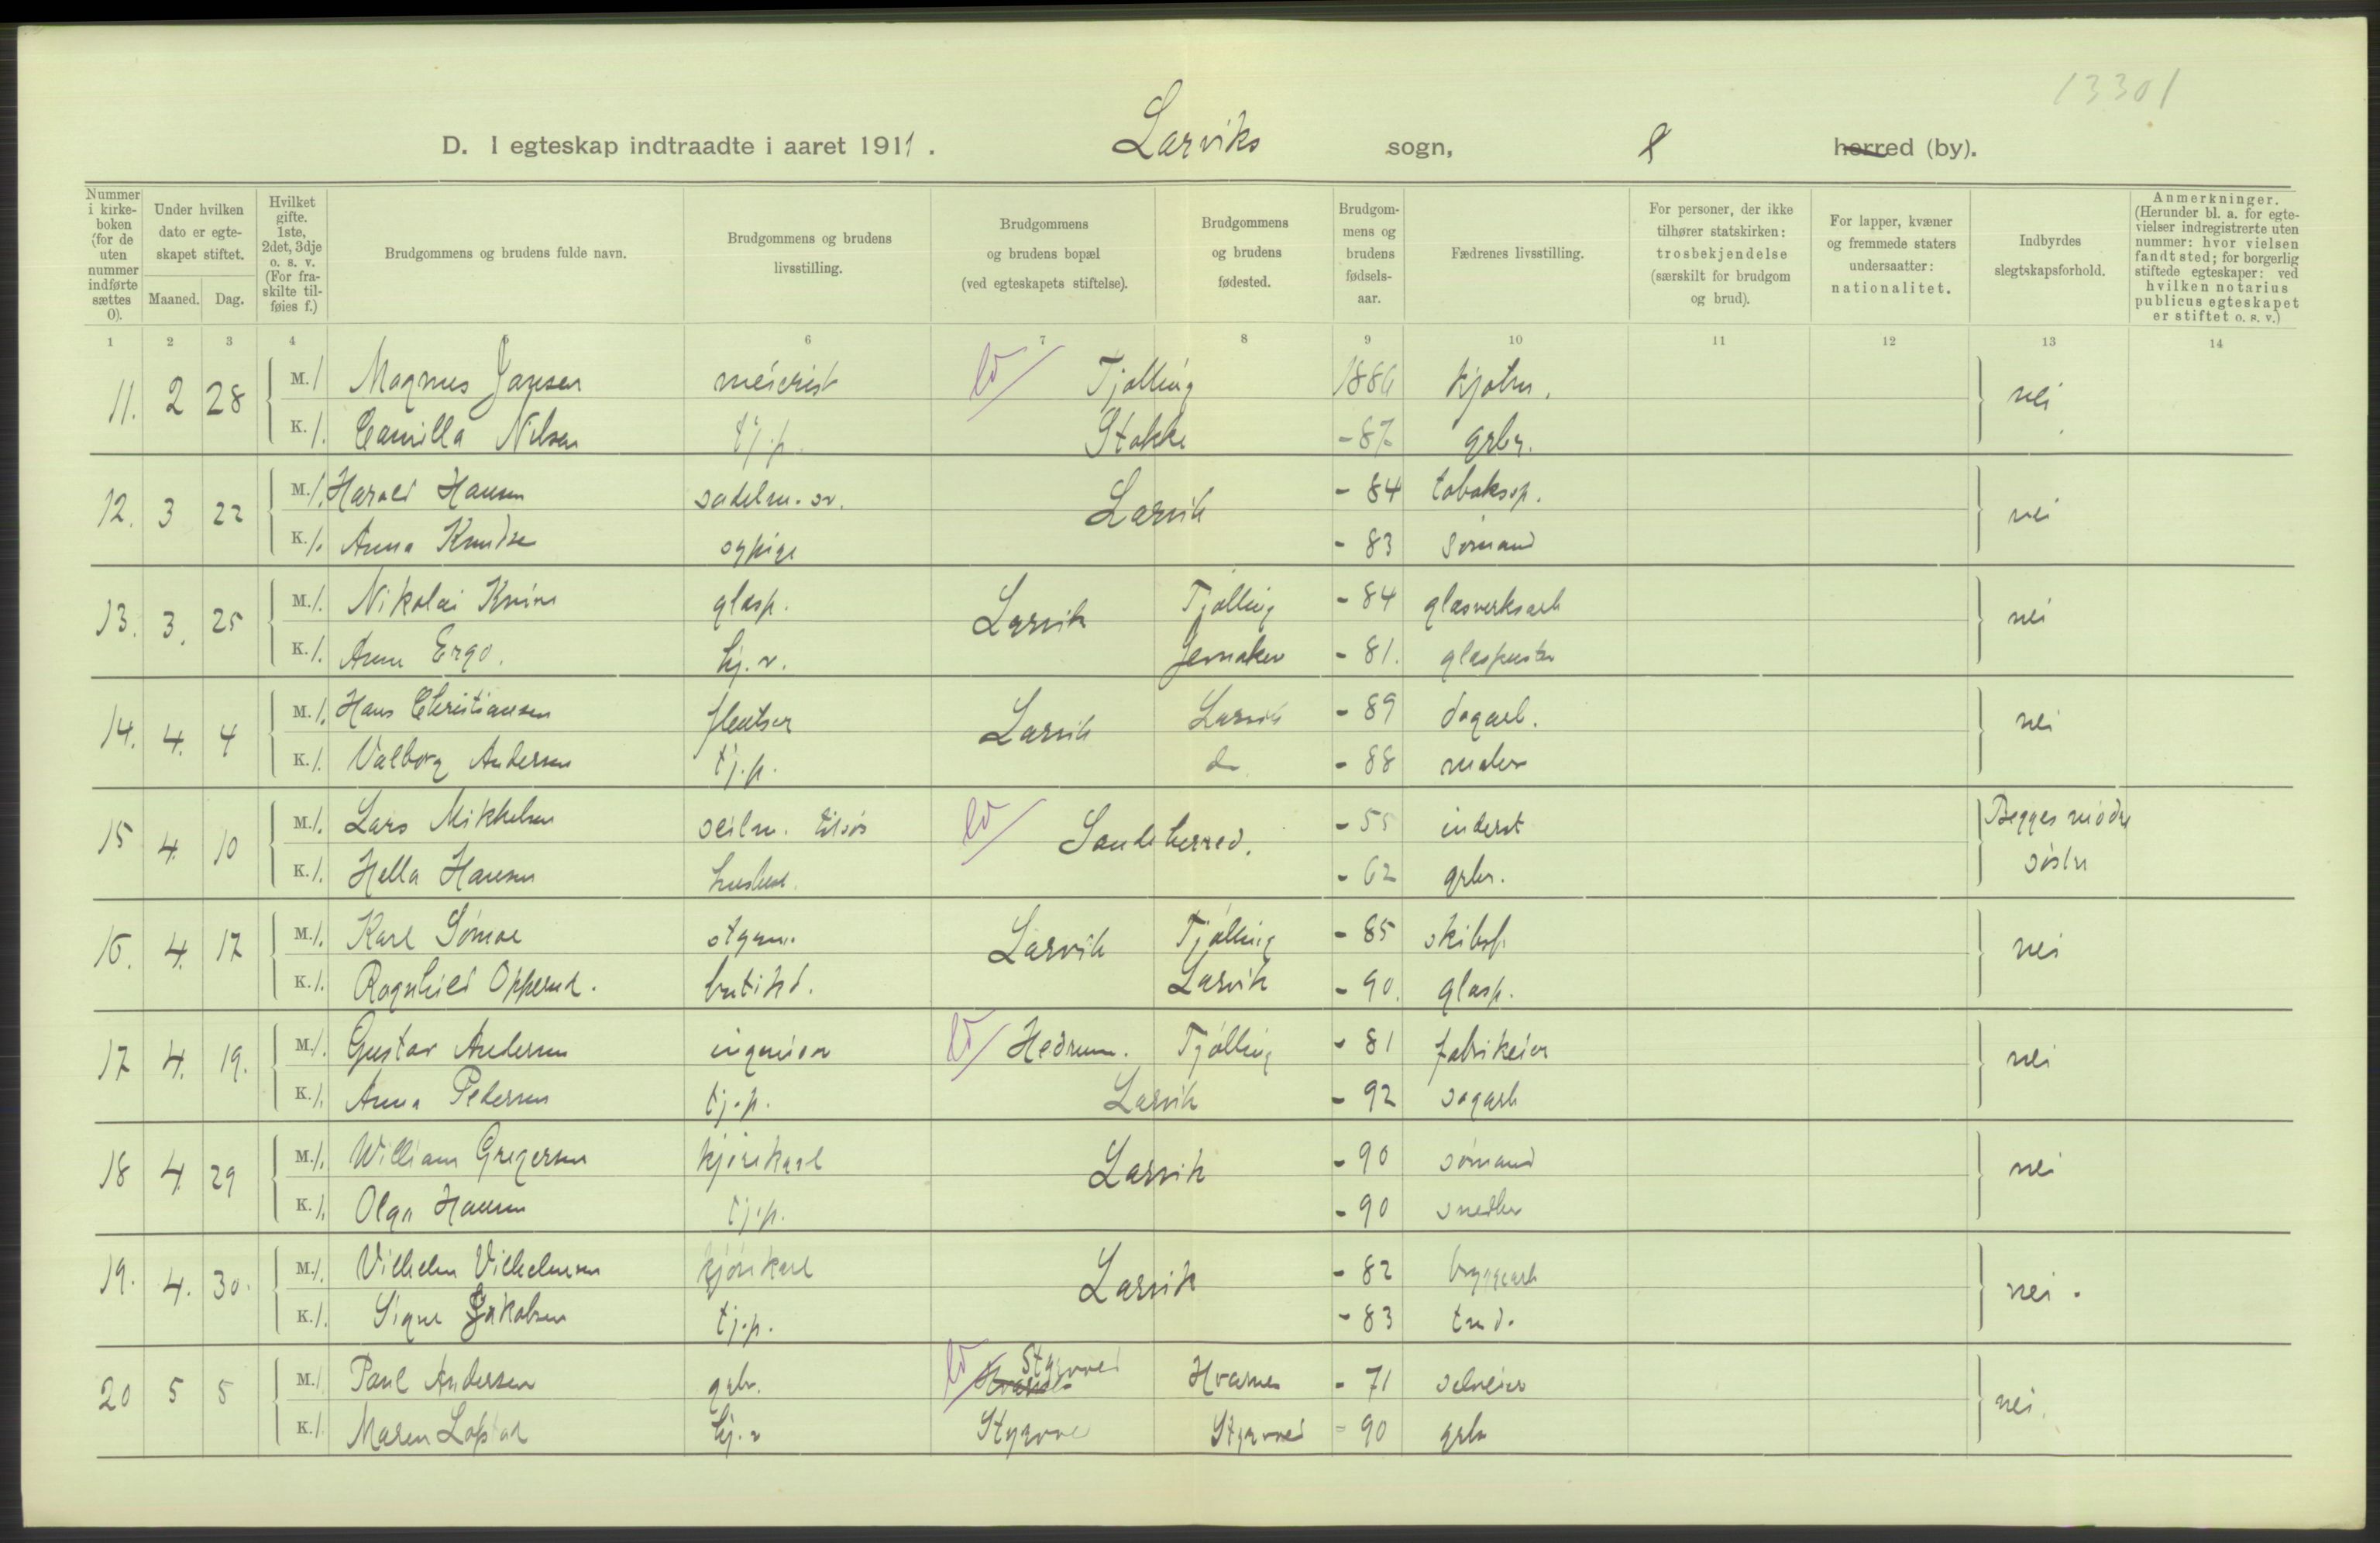 13301
D. I egteskap indtraadte i aaret 1911. Larviks sogn, herred (by).
Nummer i kirkeboken (for de uten nummer indførte sættes 0).
Under hvilken dato er egteskapet stiftet.
Maaned. Dag.
Hvilket gifte. 1ste, 2det, 3dje o. s. v. (For fraskilte tilføies f.)
Brudgommens og brudens fulde navn.
Brudgommens og brudens livsstilling.
Brudgommens og brudens bopæl (ved egteskapets stiftelse).
Brudgommens og brudens fødested.
Brudgommens og brudens fødselsaar.
Fædrenes livsstilling.
For personer, der ikke tilhører statskirken: trosbekjendelse (særskilt for brudgom og brud).
For lapper, kvæner og fremmede staters undersaatter: nationalitet.
Indbyrdes slegtskapsforhold.
Anmerkninger. (Herunder bl. a. for egtevielser indregistrerte uten nummer: hvor vielsen fandt sted; for borgerlig stiftede egteskaper: ved hvilken notarius publicus egteskapet er stiftet o. s. v.)
1 2 3 4 5 6 7 8 9 10 11 12 13 14
11. 2 28 M. 1 Magnus Jansen meierist Tjølling 1886 nei
K. 1. Camilla Nilsen tj.p. Stokke - 87 grbr.
12. 3 22 M. 1. Harald Hansen sadelm. sv. Larvik - 84 tobaksp. nei
K. 1. Anna Knudsen sypige - 83 sømand
13. 3. 25 M. 1. Nikolai glasp. Larvik Tjølling - 84 glasverksarb nei
K. 1. Anna Ergo. Jevnaker - 81. glaspuster
14. 4. 4 M. 1. Hans Christiansen Larvik Larvik - 89 dagarb. nei
K. 1. Valborg Andersen tj.p. do - 88 maler
15 4. 10 M. 1. Lars Mikkelsen seilm. tilsøs Sandeherred. - 55 inderst Begges mødre
K. 1. Hella Hansen - 62 grbr. søstre
16. 4. 17 M. 1. Karl Larvik Tjølling - 85 skibsf. nei
K. 1. Ragnhild Opperud. butikd. Larvik - 90. glasp.
17 4. 19. M. 1. Gustav Andersen ingeniør Hedrum. Tjølling - 81 fabrikeier nei
K. 1. Anna Pedersen tj.p. Larvik - 92 sagarb
18 4. 29 M. 1. William Gregersen kjørekarl Larvik - 90 sømand nei
K. 1. Olga Hansen tj.p. - 90 snedker
19. 4. 30. M. 1. Vilhelm Vilhelmsen kjørekarl Larvik - 82 bryggearb nei.
K. 1. Signe Jakobsen tj.p. - 83 tmd.
20 5 5 M. 1 Paul Andersen grbr. Styrvoll Hvarnes - 71 selveier nei.
K. 1 Maren Styrvoll Styrvoll - 90 grbr